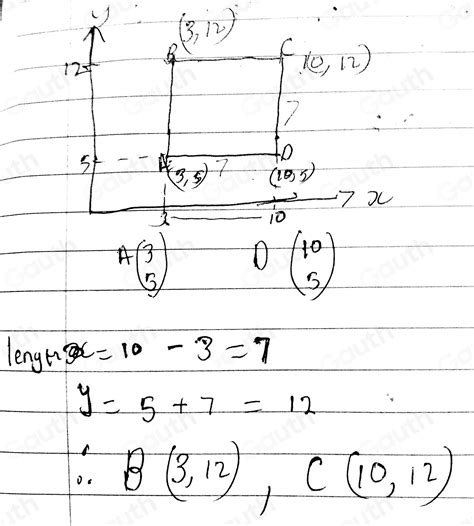 y
B (3, 12)
C (10, 12)
12
7
5
A (3, 5) 7 D (10, 5)
3 10 x
A (3 5) D (10 5)
length x = 10 - 3 = 7
y = 5 + 7 = 12
∴ B (3, 12), C (10, 12)